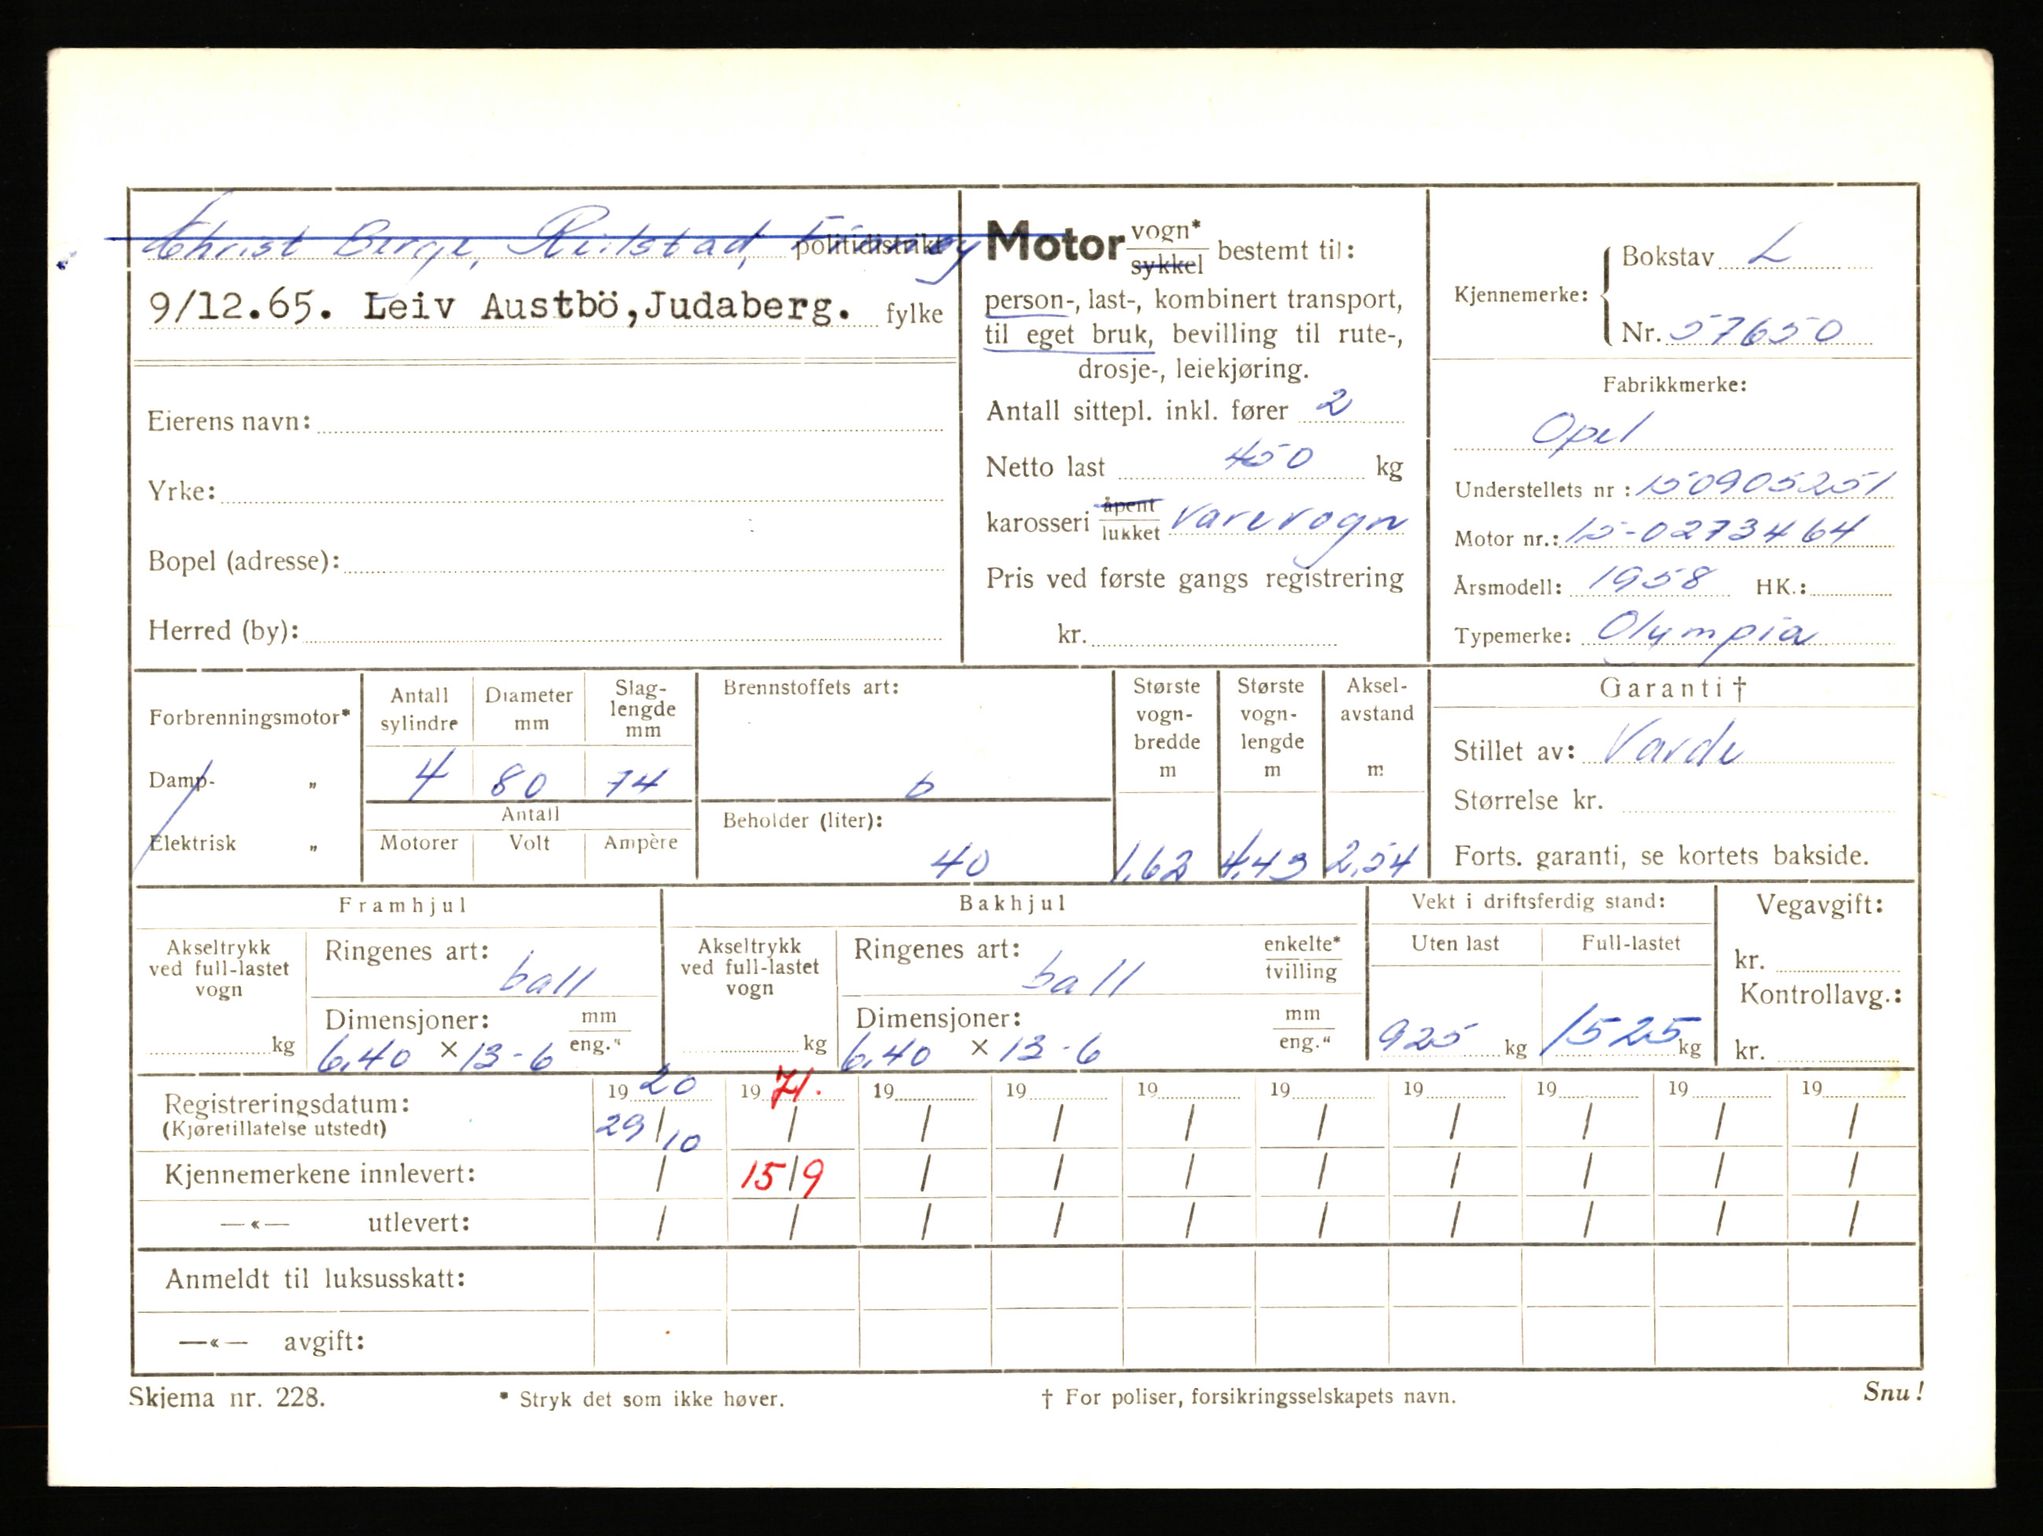 Christ Berge, Reilstad, Finnøy politidistrikt
9/12.65. Leiv Austbö, Judaberg. fylke
Eierens navn:
Yrke:
Bopel (adresse):
Herred (by):
Motor vogn* sykkel bestemt til:
person-, last-, kombinert transport,
til eget bruk, bevilling til rute-,
drosje-, leiekjøring.
Antall sittepl. inkl. fører 2
Netto last 450 kg
karosseri åpent lukket Varevogn
Pris ved første gangs registrering
kr.
Kjennemerke: Bokstav L
Nr. 57650
Fabrikkmerke:
Opel
Understellets nr : 150905251
Motor nr.: 15-0273464
Årsmodell: 1958 HK.:
Typemerke: Olympia
Forbrenningsmotor*
Damp- „
Elektrisk „
Antall sylindre 4
Diameter mm 80
Slag-lengde mm 74
Antall
Motorer Volt Ampère
Brennstoffets art:
b
Beholder (liter):
40
Største vogn-bredde m 1,62
Største vogn-lengde m 4,43
Aksel-avstand m 2,54
Garanti †
Stillet av: Varde
Størrelse kr.
Forts. garanti, se kortets bakside.
Framhjul
Akseltrykk ved full-lastet vogn
kg
Ringenes art: ball
Dimensjoner: mm eng."
6,40 × 13-6
Bakhjul
Akseltrykk ved full-lastet vogn
kg
Ringenes art: ball enkelte* tvilling
Dimensjoner: mm eng."
6,40 × 13-6
Vekt i driftsferdig stand:
Uten last Full-lastet
925 kg 1525 kg
Vegavgift:
kr.
Kontrollavg.:
kr.
Registreringsdatum: 1920 1971. 19 19 19 19 19 19 19 19
(Kjøretillatelse utstedt) 29/10 / / / / / / / / /
Kjennemerkene innlevert: / 15/9 / / / / / / / /
—«— utlevert: / / / / / / / / / /
Anmeldt til luksusskatt:
—«— avgift:
Skjema nr. 228. * Stryk det som ikke høver. † For poliser, forsikringsselskapets navn. Snu!